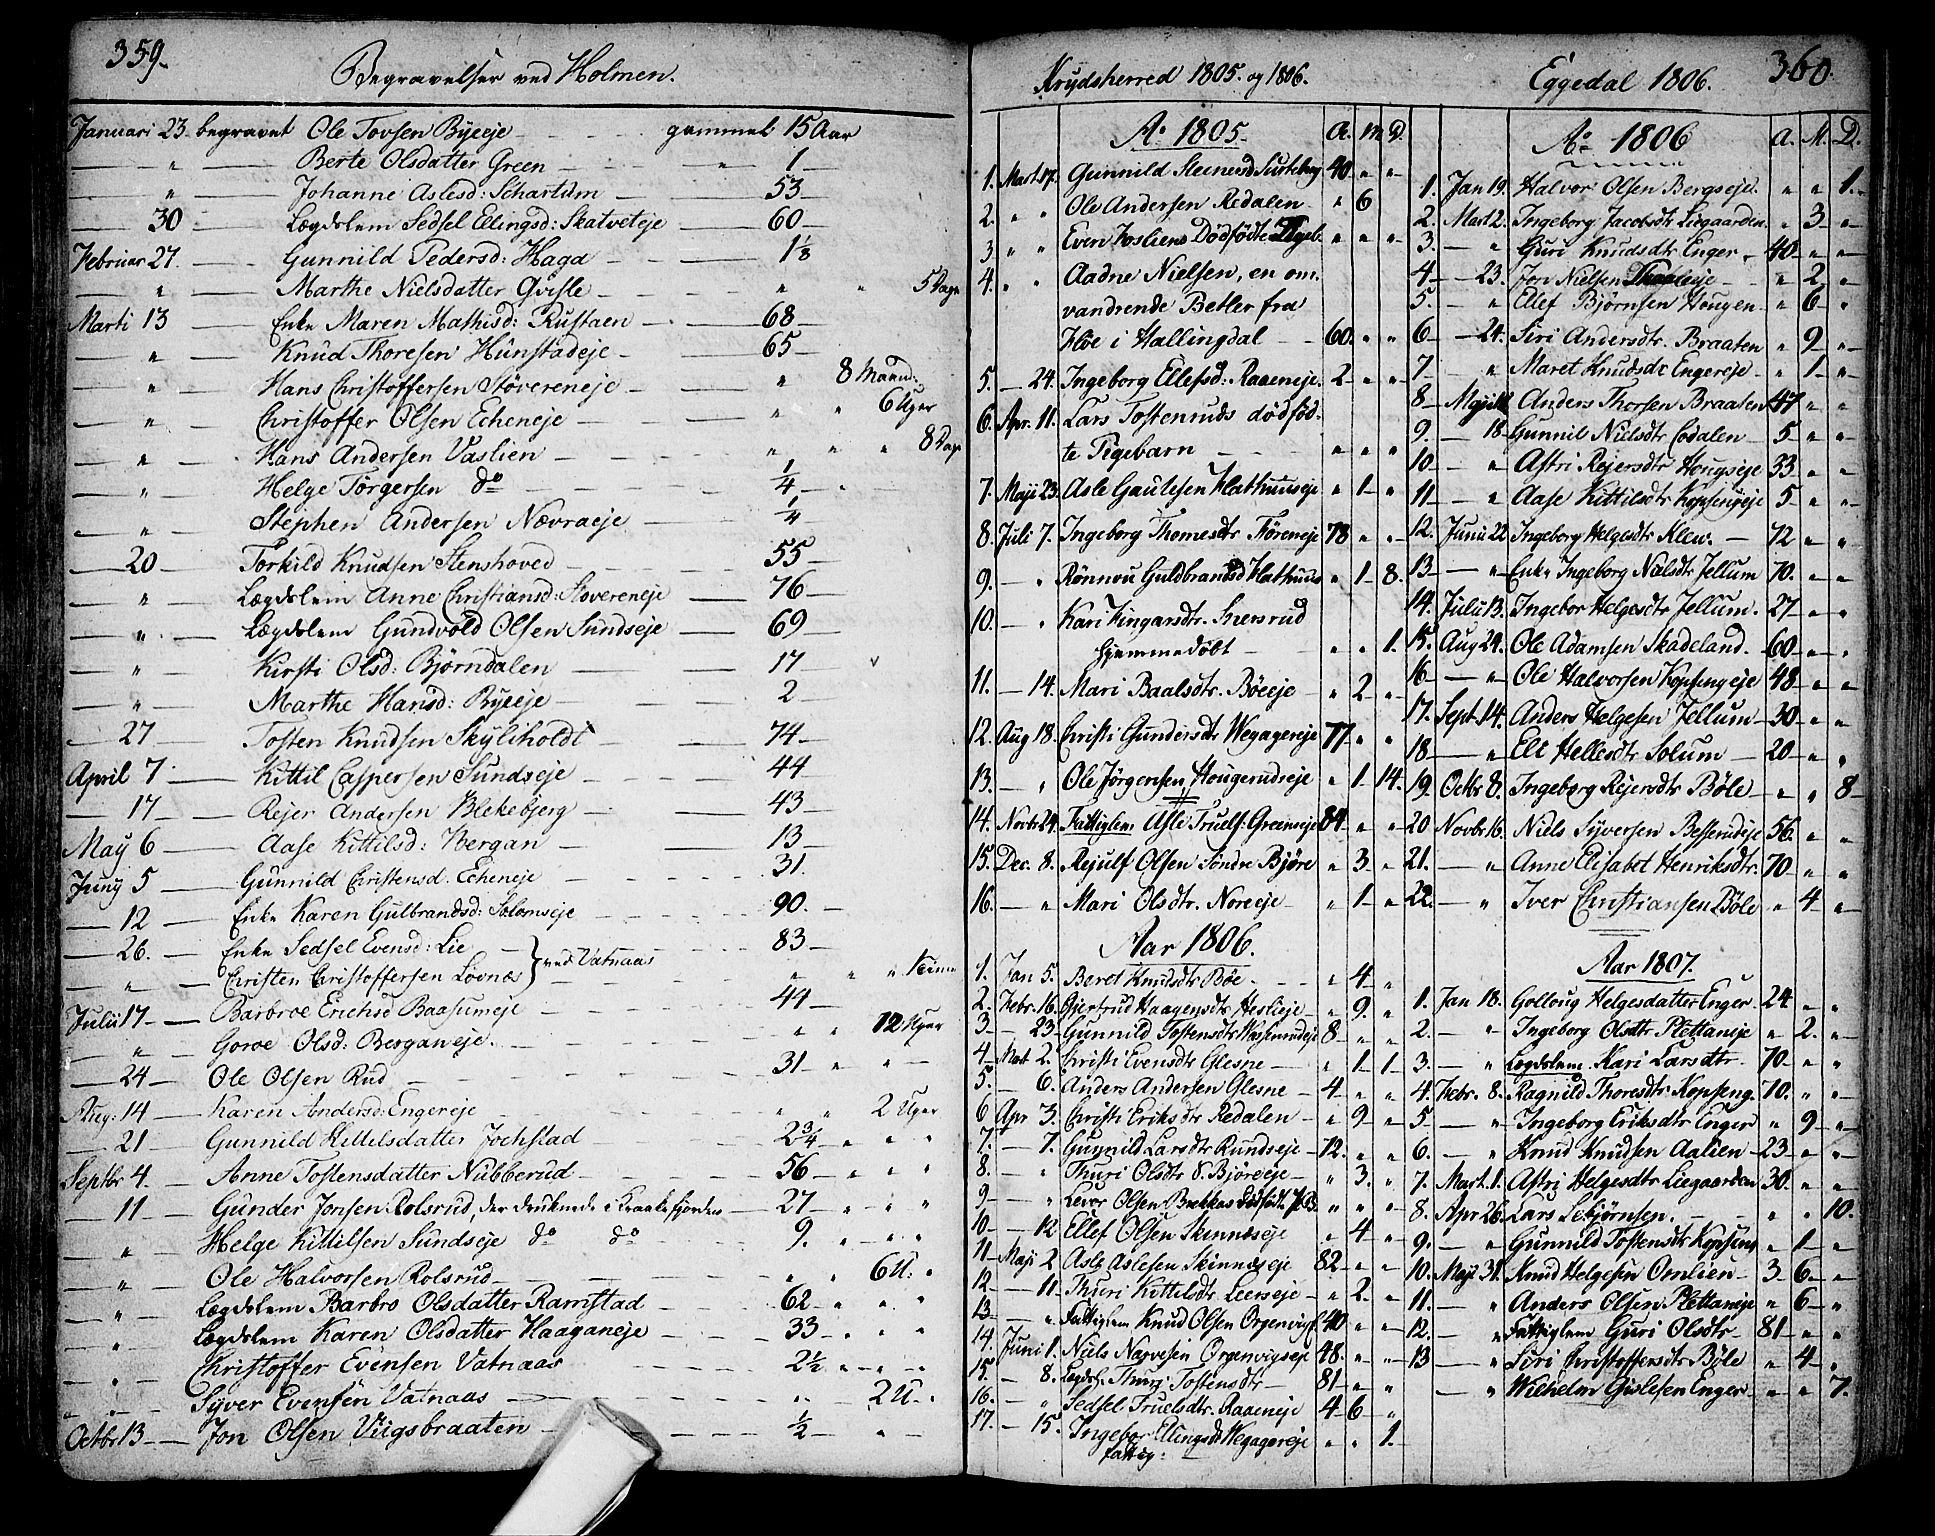 359.
Begravelser ved Holmen.
Januari 23. begravet Ole Tovsen Byeeje gammel 15 Aar
" Berte Olsdatter Green " 1
" Johanne Aslesd: Schartum 53
30 Lægdslem Sedsel Ellingsd: Skatveteje 60
Februar 27. Gunnild Pedersd: Haga 1 1/8
" Marthe Nielsdatter Qvisle " " 5 Dage
Marti 13 Enke Maren Mathisd: Rustaen 68
" Knud Thoresen Hunstadeje 65
" Hans Christoffersen Støvereneje " 8 Maand:
" Christoffer Olsen Echeneje " " 6 Uger
" Hans Andersen Vaslien " " " 8 Dage
" Helge Torgersen do 1/4 "
" Stephen Andersen Nævraeje 1/4
20 Torkild Knudsen Stenshoved 55
" Lægdslem Anne Christiansd: Støvereneje 76
" Lægdslem Gundvold Olsen Sundseje 69
" Kirsti Olsd: Bjørndalen 17
" Marthe Hansd: Byeeje 2
27 Tosten Knudsen Skyliholdt 74
April 7 Kittil Caspersen Sundseje 44
17 Rejer Andersen Blekebjerg 43
May 6 Aase Kittilsd: Bergan 13
Juny 5 Gunnild Christensd. Echeneje 31.
12 Enke Karen Gulbrandsd: Solomseje 90.
26. Enke Sedsel Evensd: Lie 83
" Christen Christoffersen Lovnæs } ved Vatnaas " " "
Julii 17 Barbroe Erichsd Baasumeje 44
" Goroe Olsd: Berganeje. " " 12 Uger
24 Ole Olsen Rud 31 " "
Aug: 14 Karen Andersd: Engereje " " 2 Uger
21 Gunnild Kittelsdatter Jochstad 2 3/4 " " "
Septbr 4. Anne Tostensdatter Nubberud 56 " " "
11 Gunder Jonsen Rolsrud, der druknede i Kraakefjorden 27 " " "
" Helge Kittilsen Sundseje do do 9. " " "
" Ole Halvorsen Rolsrud " " 6 U. "
" Lægdslem Barbro Olsdatter Ramstad 62 " " "
" Lægdslem Karen Olsdatter Haaganeje 33 " " "
" Christoffer Evensen Vatnaas 2 1/2 " " "
" Syver Evensen Vatnaas " 2 U. "
Octbr 13 Jon Olsen Viigsbraaten 1/2 " "
Krydsherred 1805. og 1806.
Ao 1805. A. M. D.
1. Mart. 17. Gunnild Steenersd 40 " "
2. " " Ole Andersen Redalen " 6
3 " " Even Josliens Dødfødte " " "
4. " " Aadne Nielsen, en om-
vandrende Betler fra
Hoe i Hallingdal 60. " "
5. 24. Ingeborg Ellefsd: Raaeneje. 2 " "
6. Apr. 11. Lars Tostenruds dødfød-
te Pigebarn " " "
7. Maji 23. Asle Gautesen Hathuuseje " 1 "
8. Juli 7. Ingeborg Thomesdtr Føreneje 78 " "
9. " Rønnou Guldbrandsd Hathuus " 1 8.
10. " Kari Kingarsdtr. Snersrud
hjemmedøbt " " 1.
11. 14. Mari Baalsdtr. Böeeje " 2 "
12. Aug 18. Christi Gundersdtr Wegagereje 77 " "
13. " Ole Jørgensen Hougerudeje " 1 14.
14. Novbr 24. Fattiglem Asle Truels: Greenseje 84 " "
15. Dec. 8. Rejulf Olsen Söndre Björe " 3 "
16. " Mari Olsdtr. Noreeje " 1 "
Aar 1806.
1. Jan 5. Beret Knutsdtr Böe " 4 "
2. Febr. 16. Gjertrud Haagensdtr Heslieje " 9 "
3 23. Gunnild Tostensdtr 8 " "
4 Mart 2. Christi Evensdtr Glesne " 1 1
5. 6. Anders Andersen Glesne 4 " "
6 Apr 3. Christi Eriksdtr Redalen " 9 "
7. 7. Gunnild Larsdtr Rundseje 12. " "
8. " Thuri Olsdtr S. Björeeje " 3. "
9 " Lever Olsen Brekkas " " "
10 12 Ellef Olsen Skinneseje " 4 "
11 Maji 2 Asle Aslesen Skinneseje 82 " "
12 11. Thuri Kittilsdtr Leerseje " 2 "
13 " Fattiglem Knud Olsen Orgenvigs 40 " "
14. Juni 1. Niels Narvesen Orgenvigseje 48. " "
15. 8. Lægdsl. Thuri Tostensdtr 81 " "
16. " Sedsel Truelsdtr. Raaeneje 4 6 "
17. 15. Ingebor Ellingsdr Wegagereje " " 1.
fattig.
Eggedal 1806. 360.
Ao 1806 A. M. D.
1. Jan 19. Halvor Olsen Bergseje. " " 1.
2. Mart 2. Ingeborg Jacobsdtr Liegaarden " 3 "
3. " Guri Knudsdtr Enger 40 " "
4 23. Jon Nielsen " 2 "
5. " Ellef Bjørnsen Hougen " 6 "
6 24. Siri Andersdtr. Braaten " 9 "
7 " Maret Knudsdr Engereje " 1 "
8 Maji Anders Thorsen Braaten 47 " "
9. 18 Gunnil Nielsdtr 5 " "
10 " Astri Rejersdtr Hougseje 33 " "
11 " Aase Kittilsdtr Kopsengeje 5 " "
12. Junii 22 Ingeborg Helgesdtr Klew. 72 " "
13 " Enke Ingeborg Nielsdtr Jellum 70. " "
14. Julii 13. Ingebor Helgesdtr Jellum. 27 " "
15. Aug 24. Ole Adamsen Skadeland. 60 " "
16 " Ole Halvorsen Kopsengeje 48 " "
17. Sept. 14. Anders Helgesen Jellum 30 " "
18 " Elt Hellesdtr Solum 20 " "
19. Octbr 8. Ingeborg Rejersdtr Böle " " 8
20 Novbr 16. Niels Syversen Besserudeje 56. " "
21. " Anne Elisabet Henriksdtr. 70 " "
22. " Iver Christiansen Böle " 4 "
Aar 1807.
1. Jan 18. Golloug Helgesdatter Enger 24 " "
2. " Ingeborg Olsdtr Plettaneje " 2. "
3. " Lægdslem Kari Larsdtr 70. " "
4. Febr. 8. Ragnild Thoresdtr Kopseng. 70. " "
5 " Ingeborg Eriksdtr Enger " 9 "
6. " Knud Knudsen Aalien 23 " "
7. Mart. 1. Astri Helgesdtr Liegaarden 30. " "
8. Apr 26. Lars Sebjörnsen. " " 10.
9. " Gunnild Tostensdtr Kopseng " 1 "
10. Maji 31. Knud Helgesen Omlien 3 6 "
11. " Anders Olsen Plettaneje " 6 "
12. " Fattiglem Guri Olsdtr 81 " "
13 " Siri Christoffersdtr Böle " 4 "
" Wilhelm Gislesen Enger " " 7.